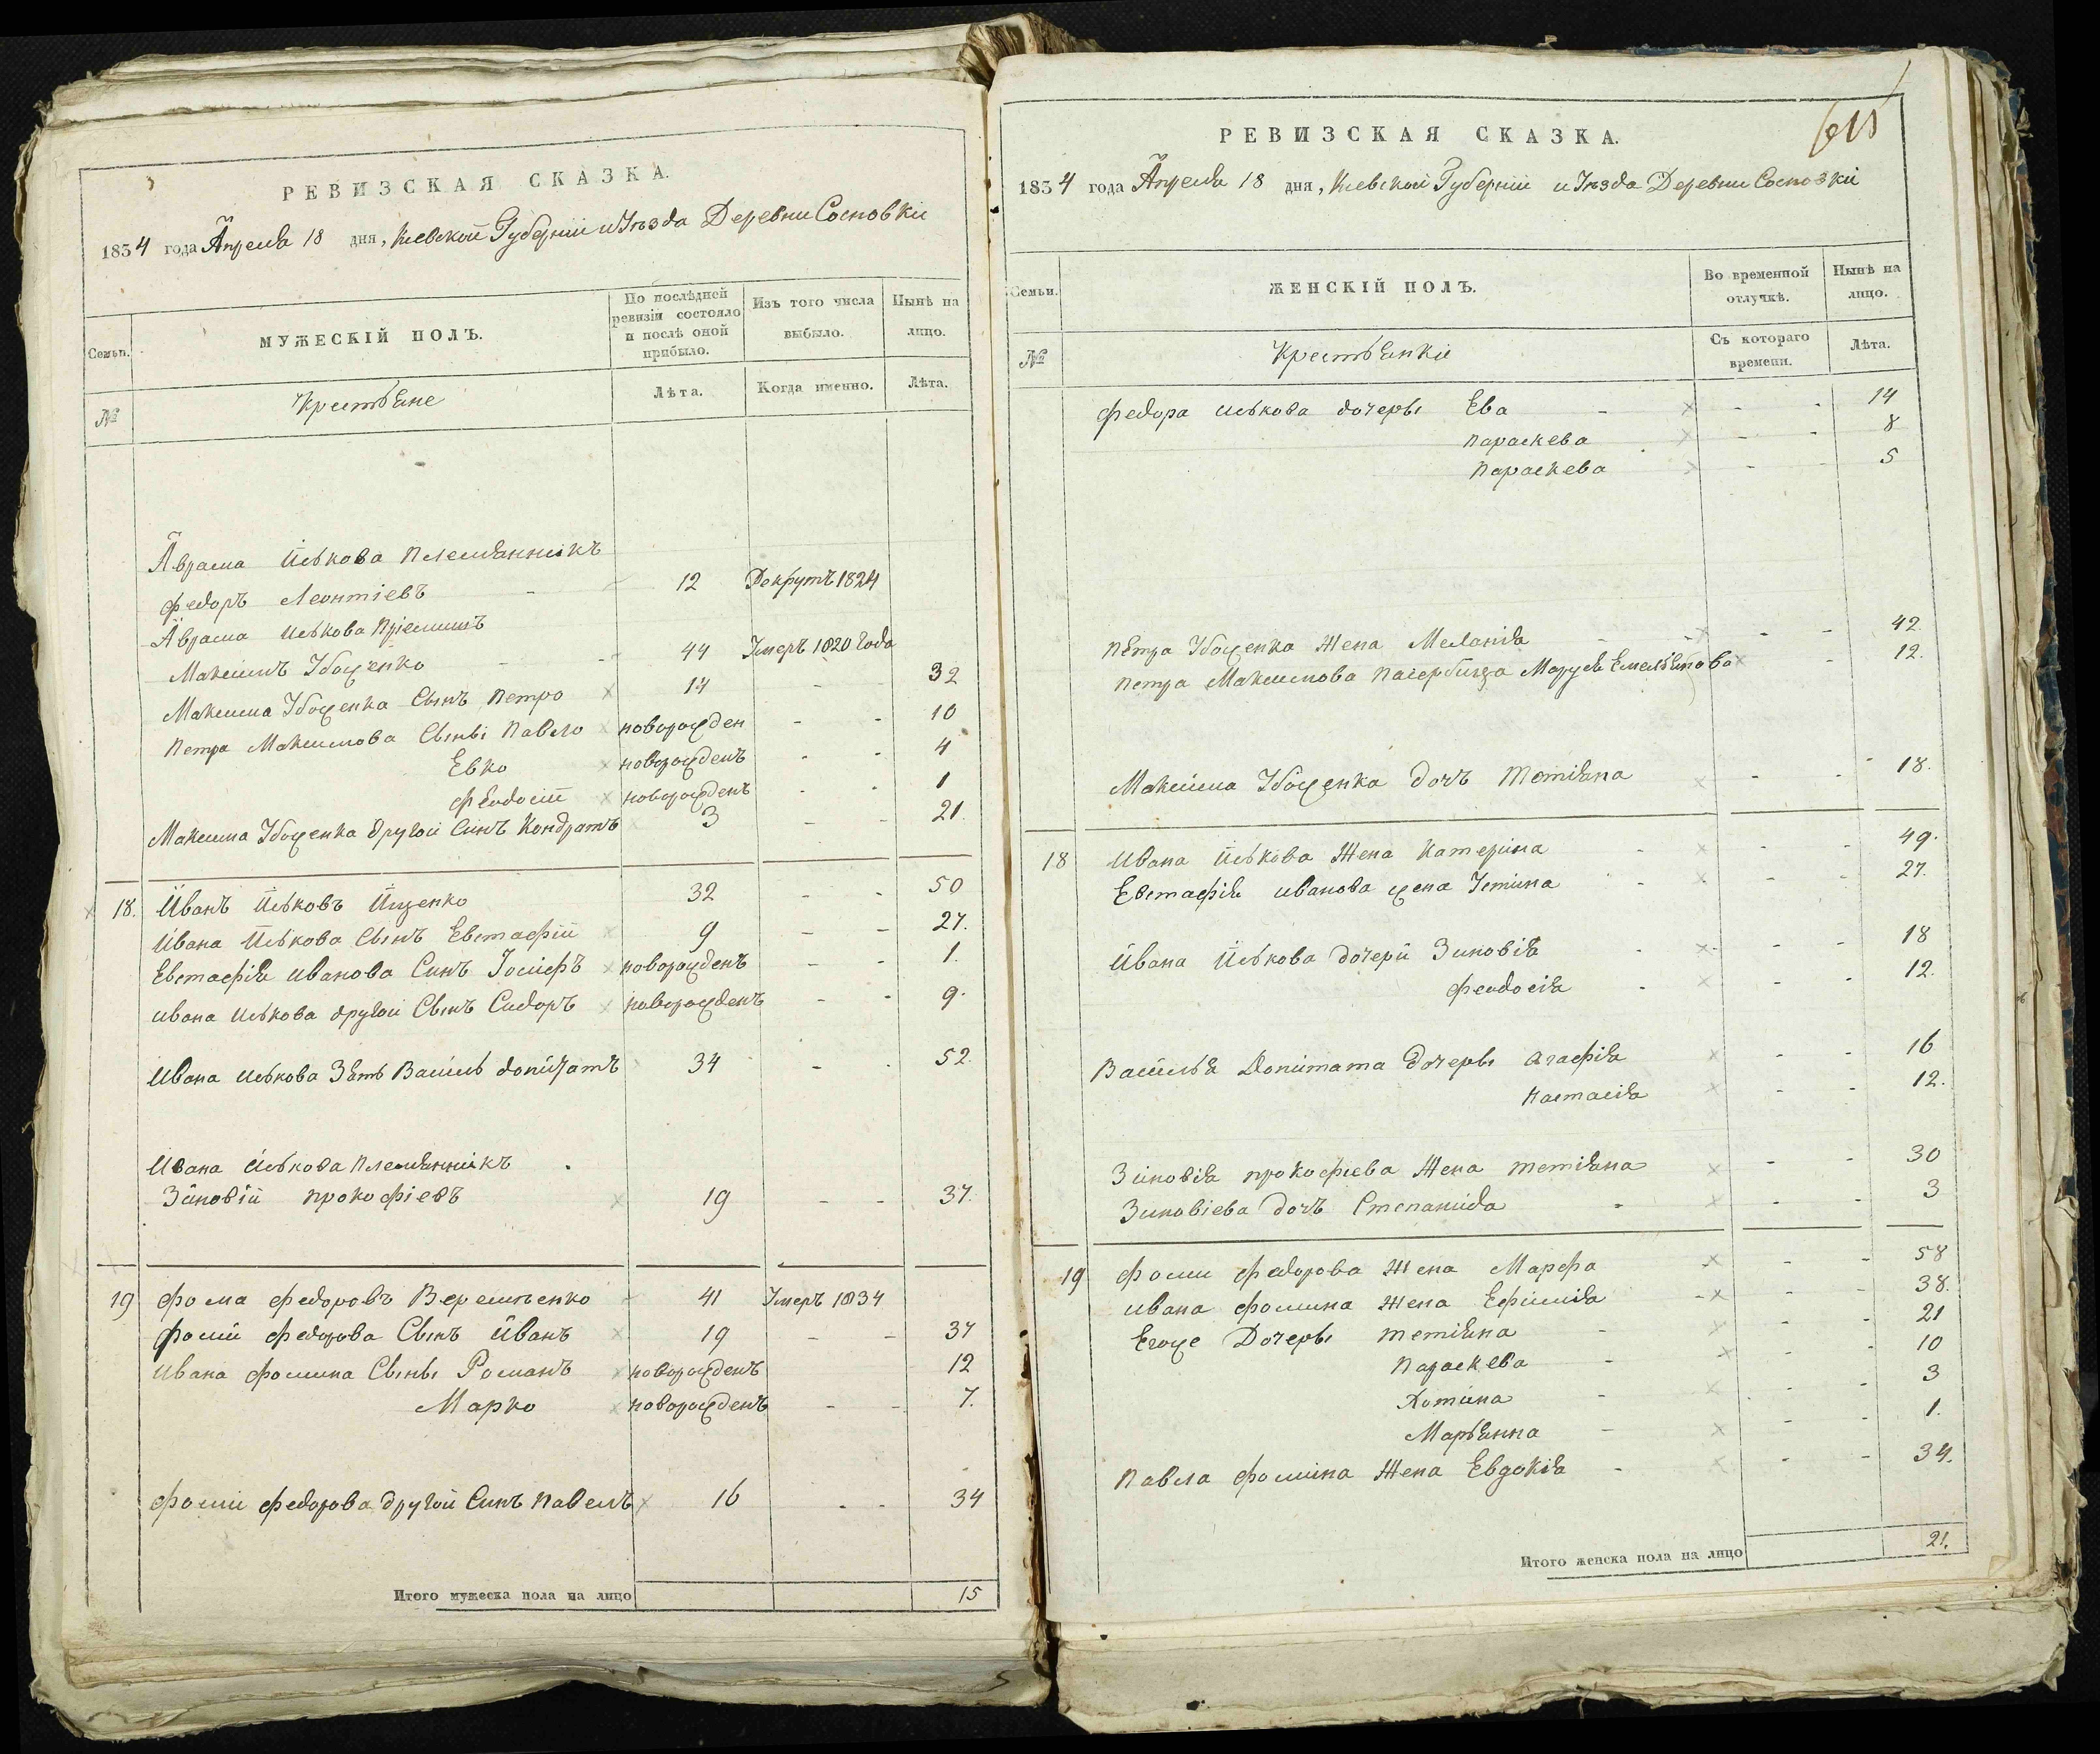 РЕВИЗСКАЯ СКАЗКА.
1834 года Апреля 18 дня, Киевской Губернии и Уѣзда Деревни Сосновки
Семьи.
МУЖЕСКІЙ ПОЛЪ.
По послѣдней ревизіи состояло и послѣ оной прибыло.
Изъ того числа выбыло.
Нынѣ на лицо.
№
Крестьяне
Лѣта.
Когда именно.
Лѣта.
Аврама Иськова племянникъ
Федоръ Леонтіевъ - 12 Рекрутъ 1824
Аврама Иськова пріемишъ
Максимъ Убоженко - - 44 Умеръ 1820 Года
Максима Убоженка Сынъ Петро 14 - 32
Петра Максимова Сыны Павло новорожден - - 10
Евко новорожденъ - - 4
Феодосій новорожденъ - - 1
Максима Убоженка другой Синъ Кондратъ 3 - - 21.
18. Иванъ Иськовъ Ищенко 32 - - 50
Ивана Иськова Сынъ Евстафій 9 - - 27.
Евстафія Иванова Синъ Іосифъ новорожденъ - - 1.
Ивана Иськова другой Сынъ Сидоръ новорожденъ - - 9.
Ивана Иськова Зять Василь 34 - - 52.
Ивана Иськова племянникъ
Зіновій Прокофіевъ 19 - - 37.
19 Фома Федоровъ 41 Умеръ 1834
Фоми Федорова Сынъ Иванъ 19 - - 37
Ивана Фомина Сыны Романъ новорожденъ 12
Марко новорожденъ - - 7.
Фоми Федорова другой Синъ Павелъ 16 - - 34
Итого мужеска пола на лицо 15
РЕВИЗСКАЯ СКАЗКА.
615
1834 года Апреля 18 дня, Киевской Губерніи и Уѣзда Деревни Сосновки
Семьи.
ЖЕНСКІЙ ПОЛЪ.
Во временной отлучкѣ.
Нынѣ на лицо.
№
Крестьянки
Съ котораго времени.
Лѣта.
Федора Иськова дочеры Ева - - - 14
Параскева - - 8
Параскева - - 5
Петра Убоженка Жена Меланія - - - 42.
Петра Максимова пасербица Маруся Емельянова - 12.
Максима Убоженка дочъ Тетіяна - - 18.
18 Ивана Иськова Жена Катерина - - - 49.
Евстафія Иванова жена Устина - - - 27.
Ивана Иськова дочери Зиновія - - - 18
Феодосія - - - 12.
Василья дочеры Агафія - - 16
Настасія - - 12.
Зіновія Прокофіева Жена Тетіяна - - 30
Зиновіева дочъ Степанида - - - 3
19 Фоми Федорова Жена Марфа - - 58
Ивана Фомина Жена Ефимія - - - 38.
Егоже Дочеры Тетіяна - - - 21
Параскева - - - 10
Хотина - - - 3
Марьянна - - - 1.
Павла Фомина Жена Евдокія - - - 34.
Итого женска пола на лицо 21.